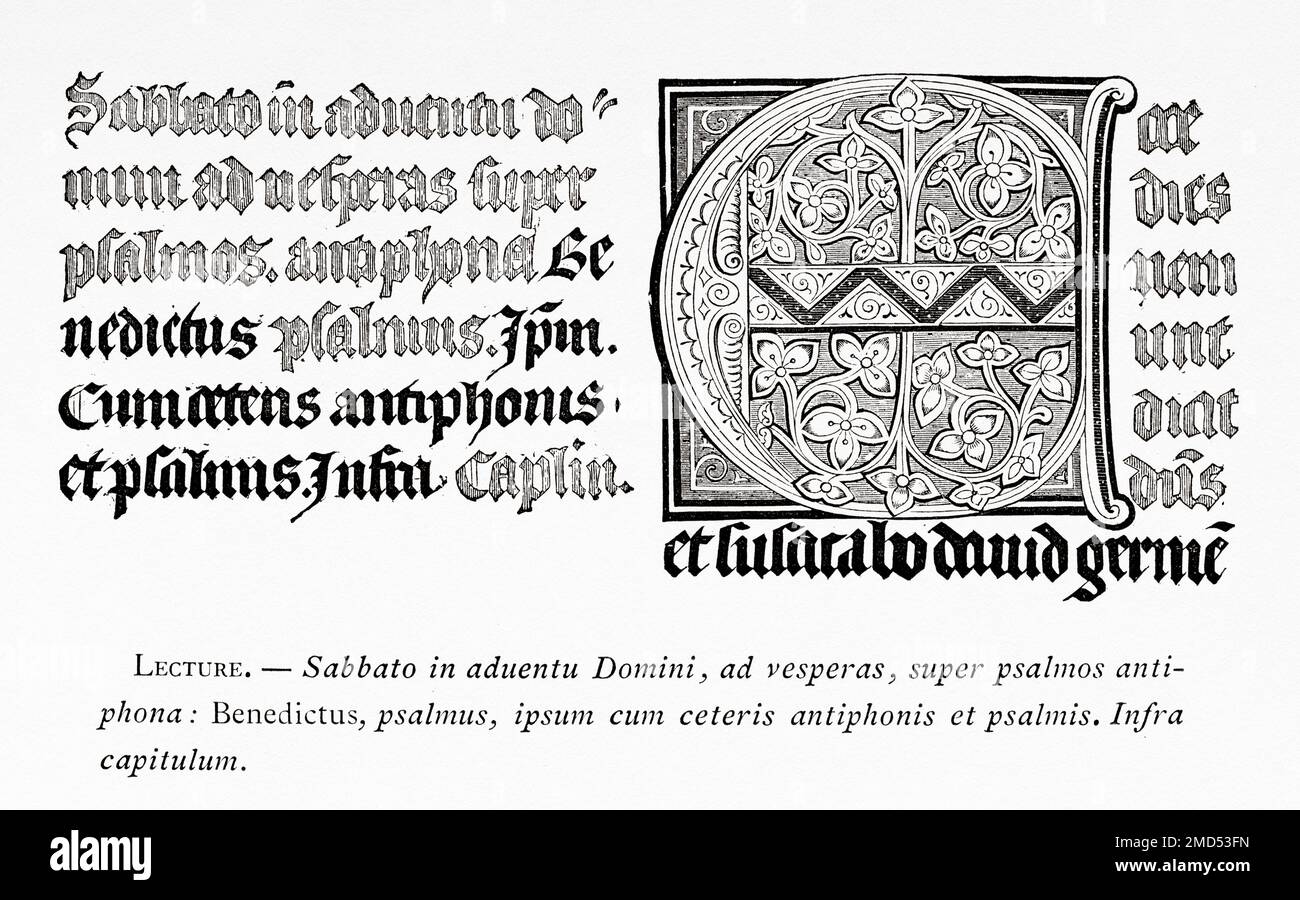 Sabbato in aduentu do
mini ad uesperas super
psalmos. antiphona Be
nedictus psalmus. Ip̄m.
Cum ceteris antiphonis
et psalmis. Infra Caplm.
Ecce
dies
ueni
unt
dicit
dñs
et suscitabo dauid germē
LECTURE. — Sabbato in aduentu Domini, ad vesperas, super psalmos anti-
phona: Benedictus, psalmus, ipsum cum ceteris antiphonis et psalmis. Infra
capitulum.
alamy
Image ID: 2MD53FN
www.alamy.com